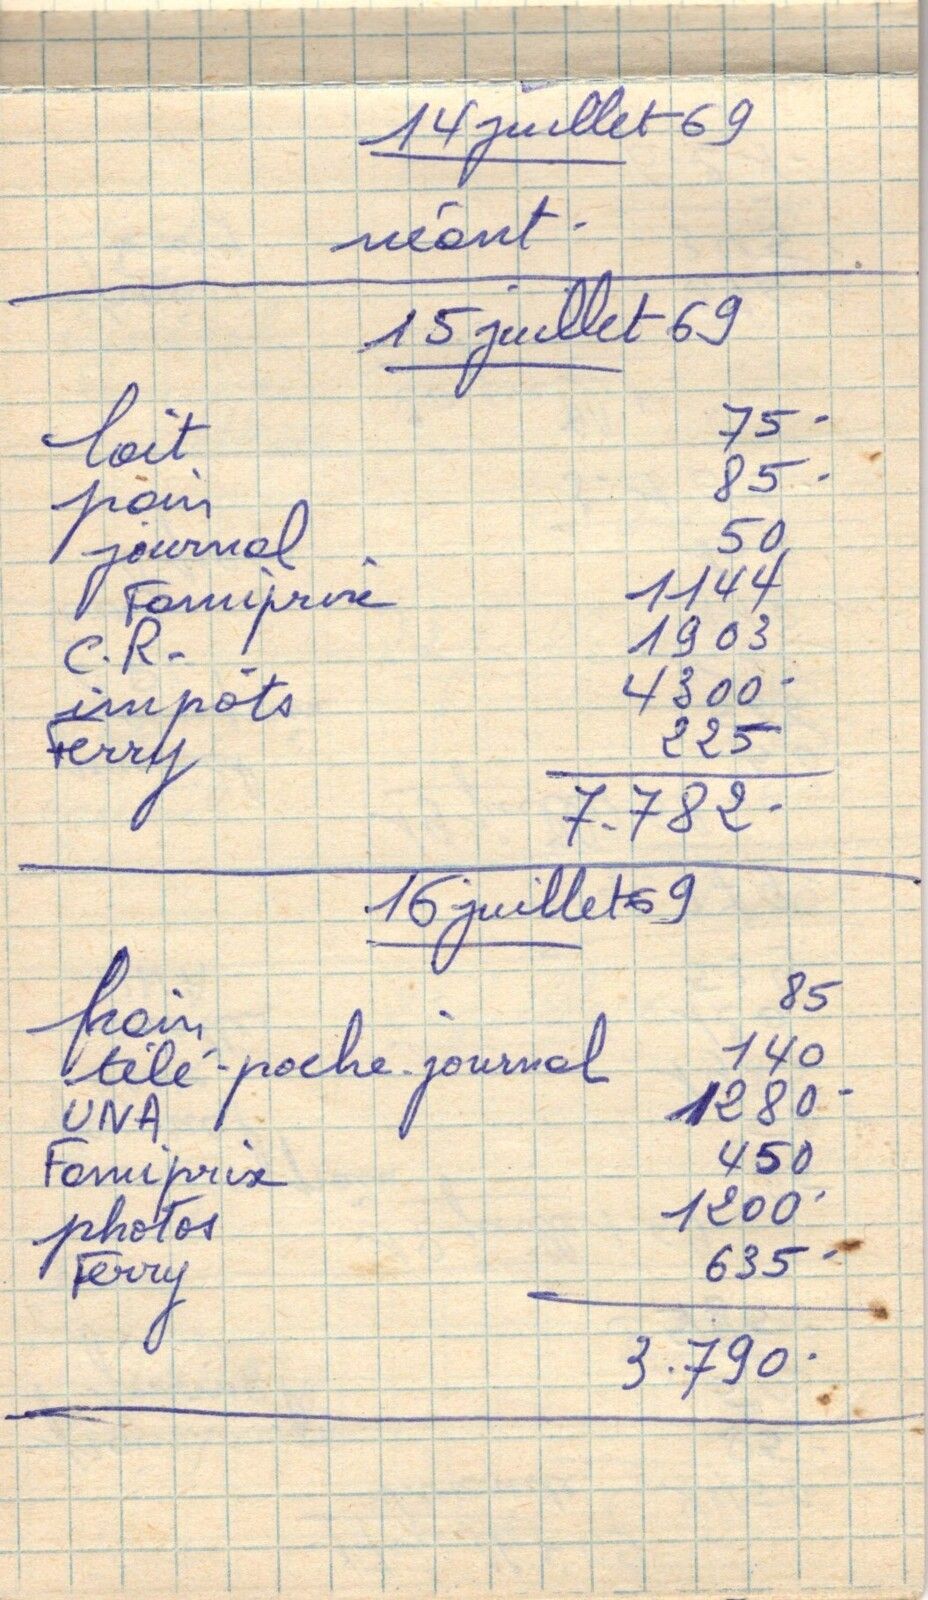 14 juillet 69
néant -
15 juillet 69
lait 75 -
pain 85 -
journal 50
Famiprix 1144
C.R. - 1903
impôts 4300 -
Ferry 225
7.782 -
16 juillet 69
pain 85
télé-poche-journal 140
UNA 1280 -
Famiprix 450
photos 1200 -
Ferry 635 -
3.790 -